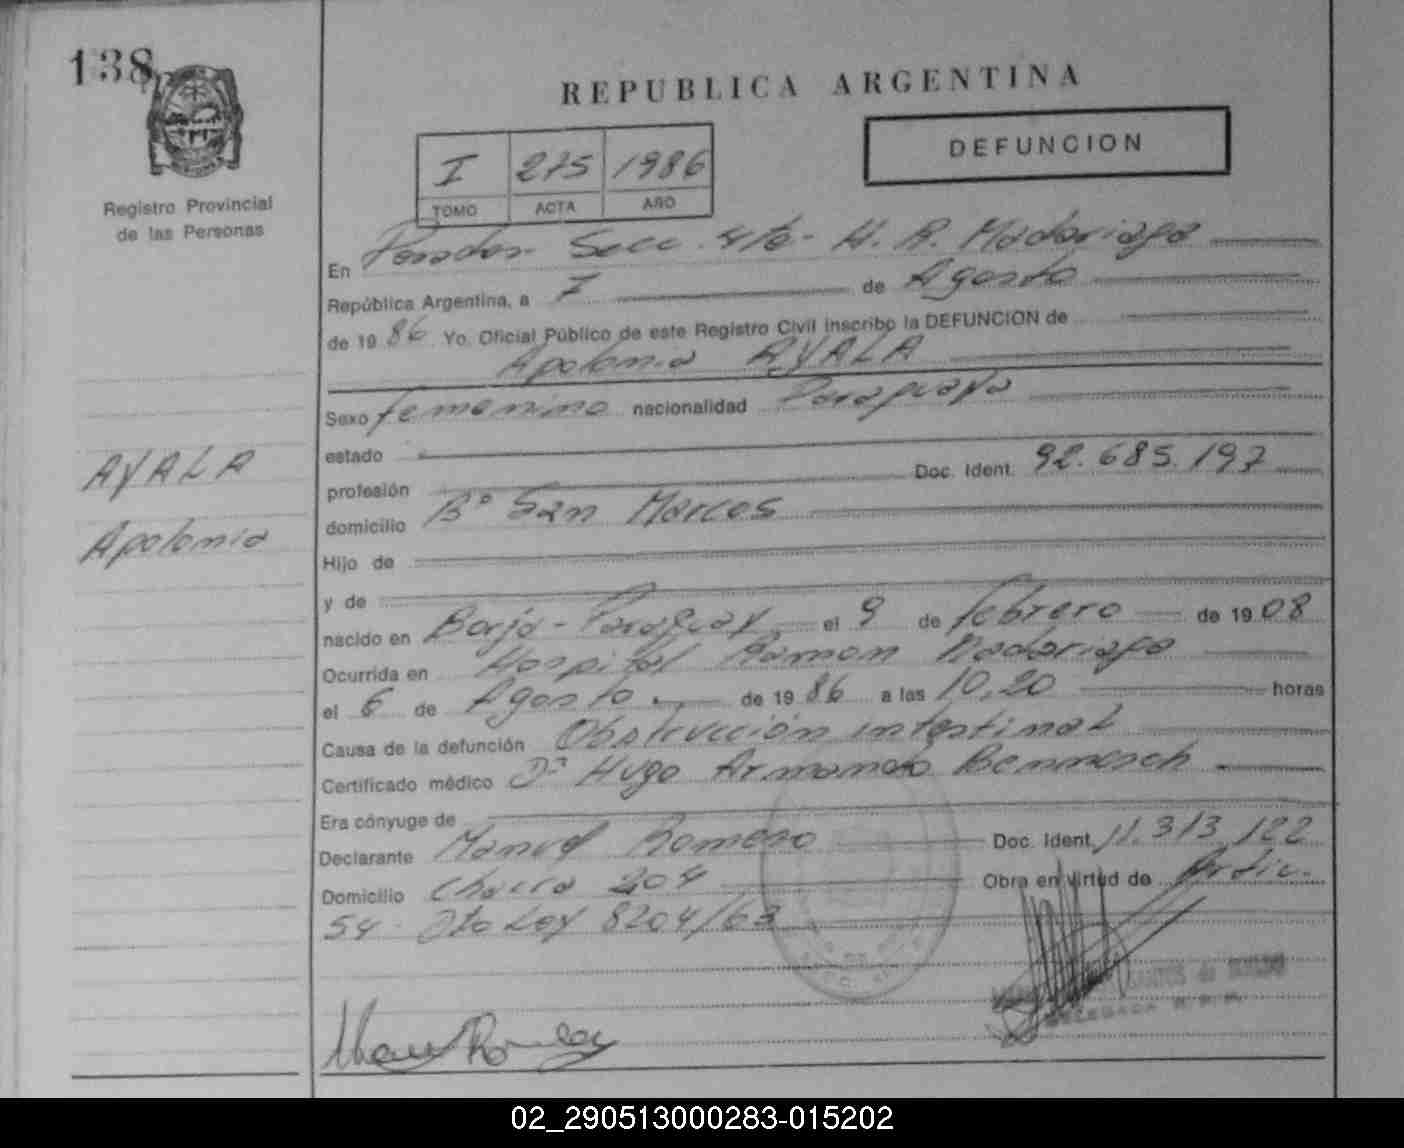 138
REPUBLICA ARGENTINA
DEFUNCION
I 275 1986
TOMO ACTA AÑO
Registro Provincial
de las Personas
En Posadas Secc. 4ta- H. R. Madariaga
República Argentina, a 7 de Agosto
de 1986 Yo. Oficial Público de este Registro Civil inscribo la DEFUNCION de
Apolonia AYALA
Sexo femenino nacionalidad Paraguaya
estado
profesión Doc. Ident. 92.685.197
domicilio Bº San Marcos
Hijo de
y de
nacido en Borja-Paraguay el 9 de febrero de 1908
Ocurrida en Hospital Ramon Madariaga
el 6 de Agosto de 1986 a las 10,20 horas
Causa de la defunción Obstrucción intestinal
Certificado médico Dr Hugo Armando
Era cónyuge de
Declarante Manuel Romero Doc. Ident. 11.313.122
Domicilio Chacra 204 Obra en virtud de Artic.
54 Dto Ley 8204/63
AYALA
Apolonia
SANTOS de
DELEGADA R. P. P.
02_290513000283-015202